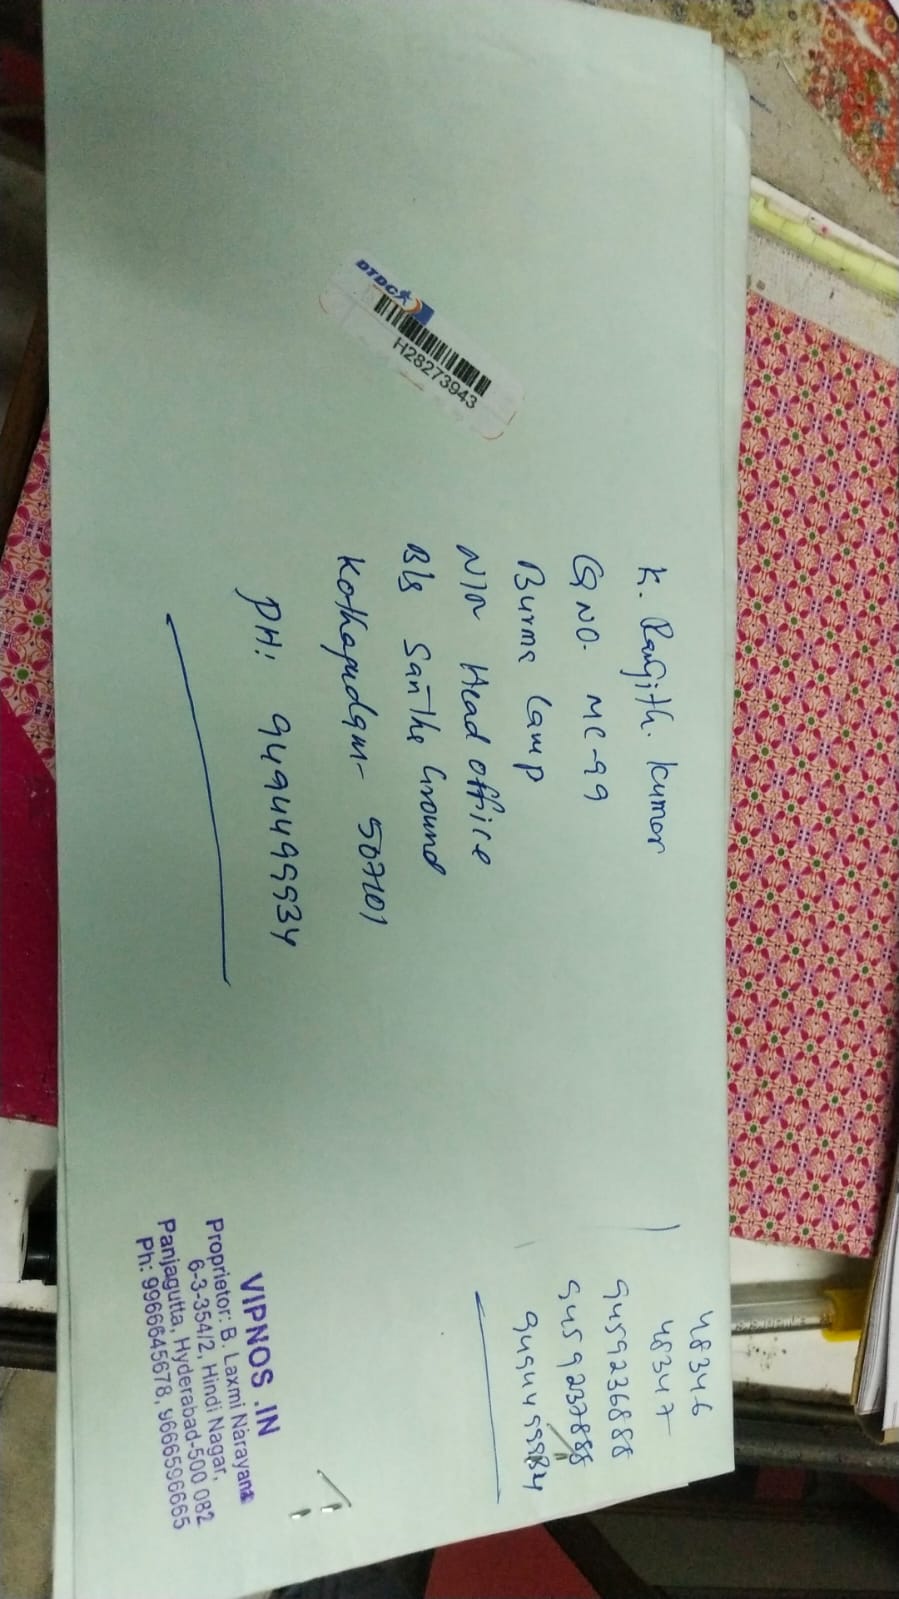 DTDC
H28273943
K. Ranjith. Kumar
QNO. MC-99
Burma Camp
N/R Head office
B/s Santhe Ground
Kothagudam- 507101
PH: 9494499934
48346
48347
9459236888
9459237888
VIPNOS .IN
Proprietor: B. Laxmi Narayana
6-3-354/2, Hindi Nagar,
Panjagutta, Hyderabad-500 082
Ph: 9966645678, 9666596665